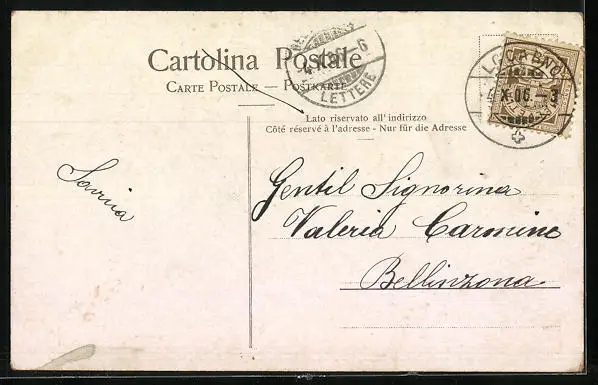 Cartolina Postale
CARTE POSTALE — POSTKARTE
Lato riservato all' indirizzo
Côté réservé à l'adresse - Nur für die Adresse
LETTERE
LOCARNO
X.06.
Savina
Gentil Signorina
Valeria Carmine
Bellinzona.